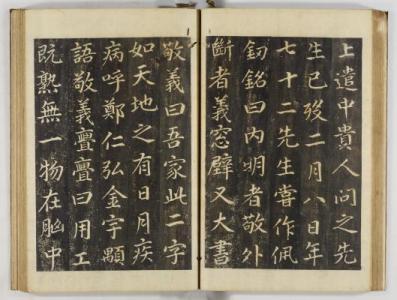 上遣中貴人問之先
生已歿二月八日年
七十二先生嘗作佩
釰銘曰內明者敬外
斷者義窓壁又大書
敬義曰吾家此二字
如天地之有日月疾
病呼鄭仁弘金宇顒
語敬義亹亹曰用工
旣熟無一物在胷中